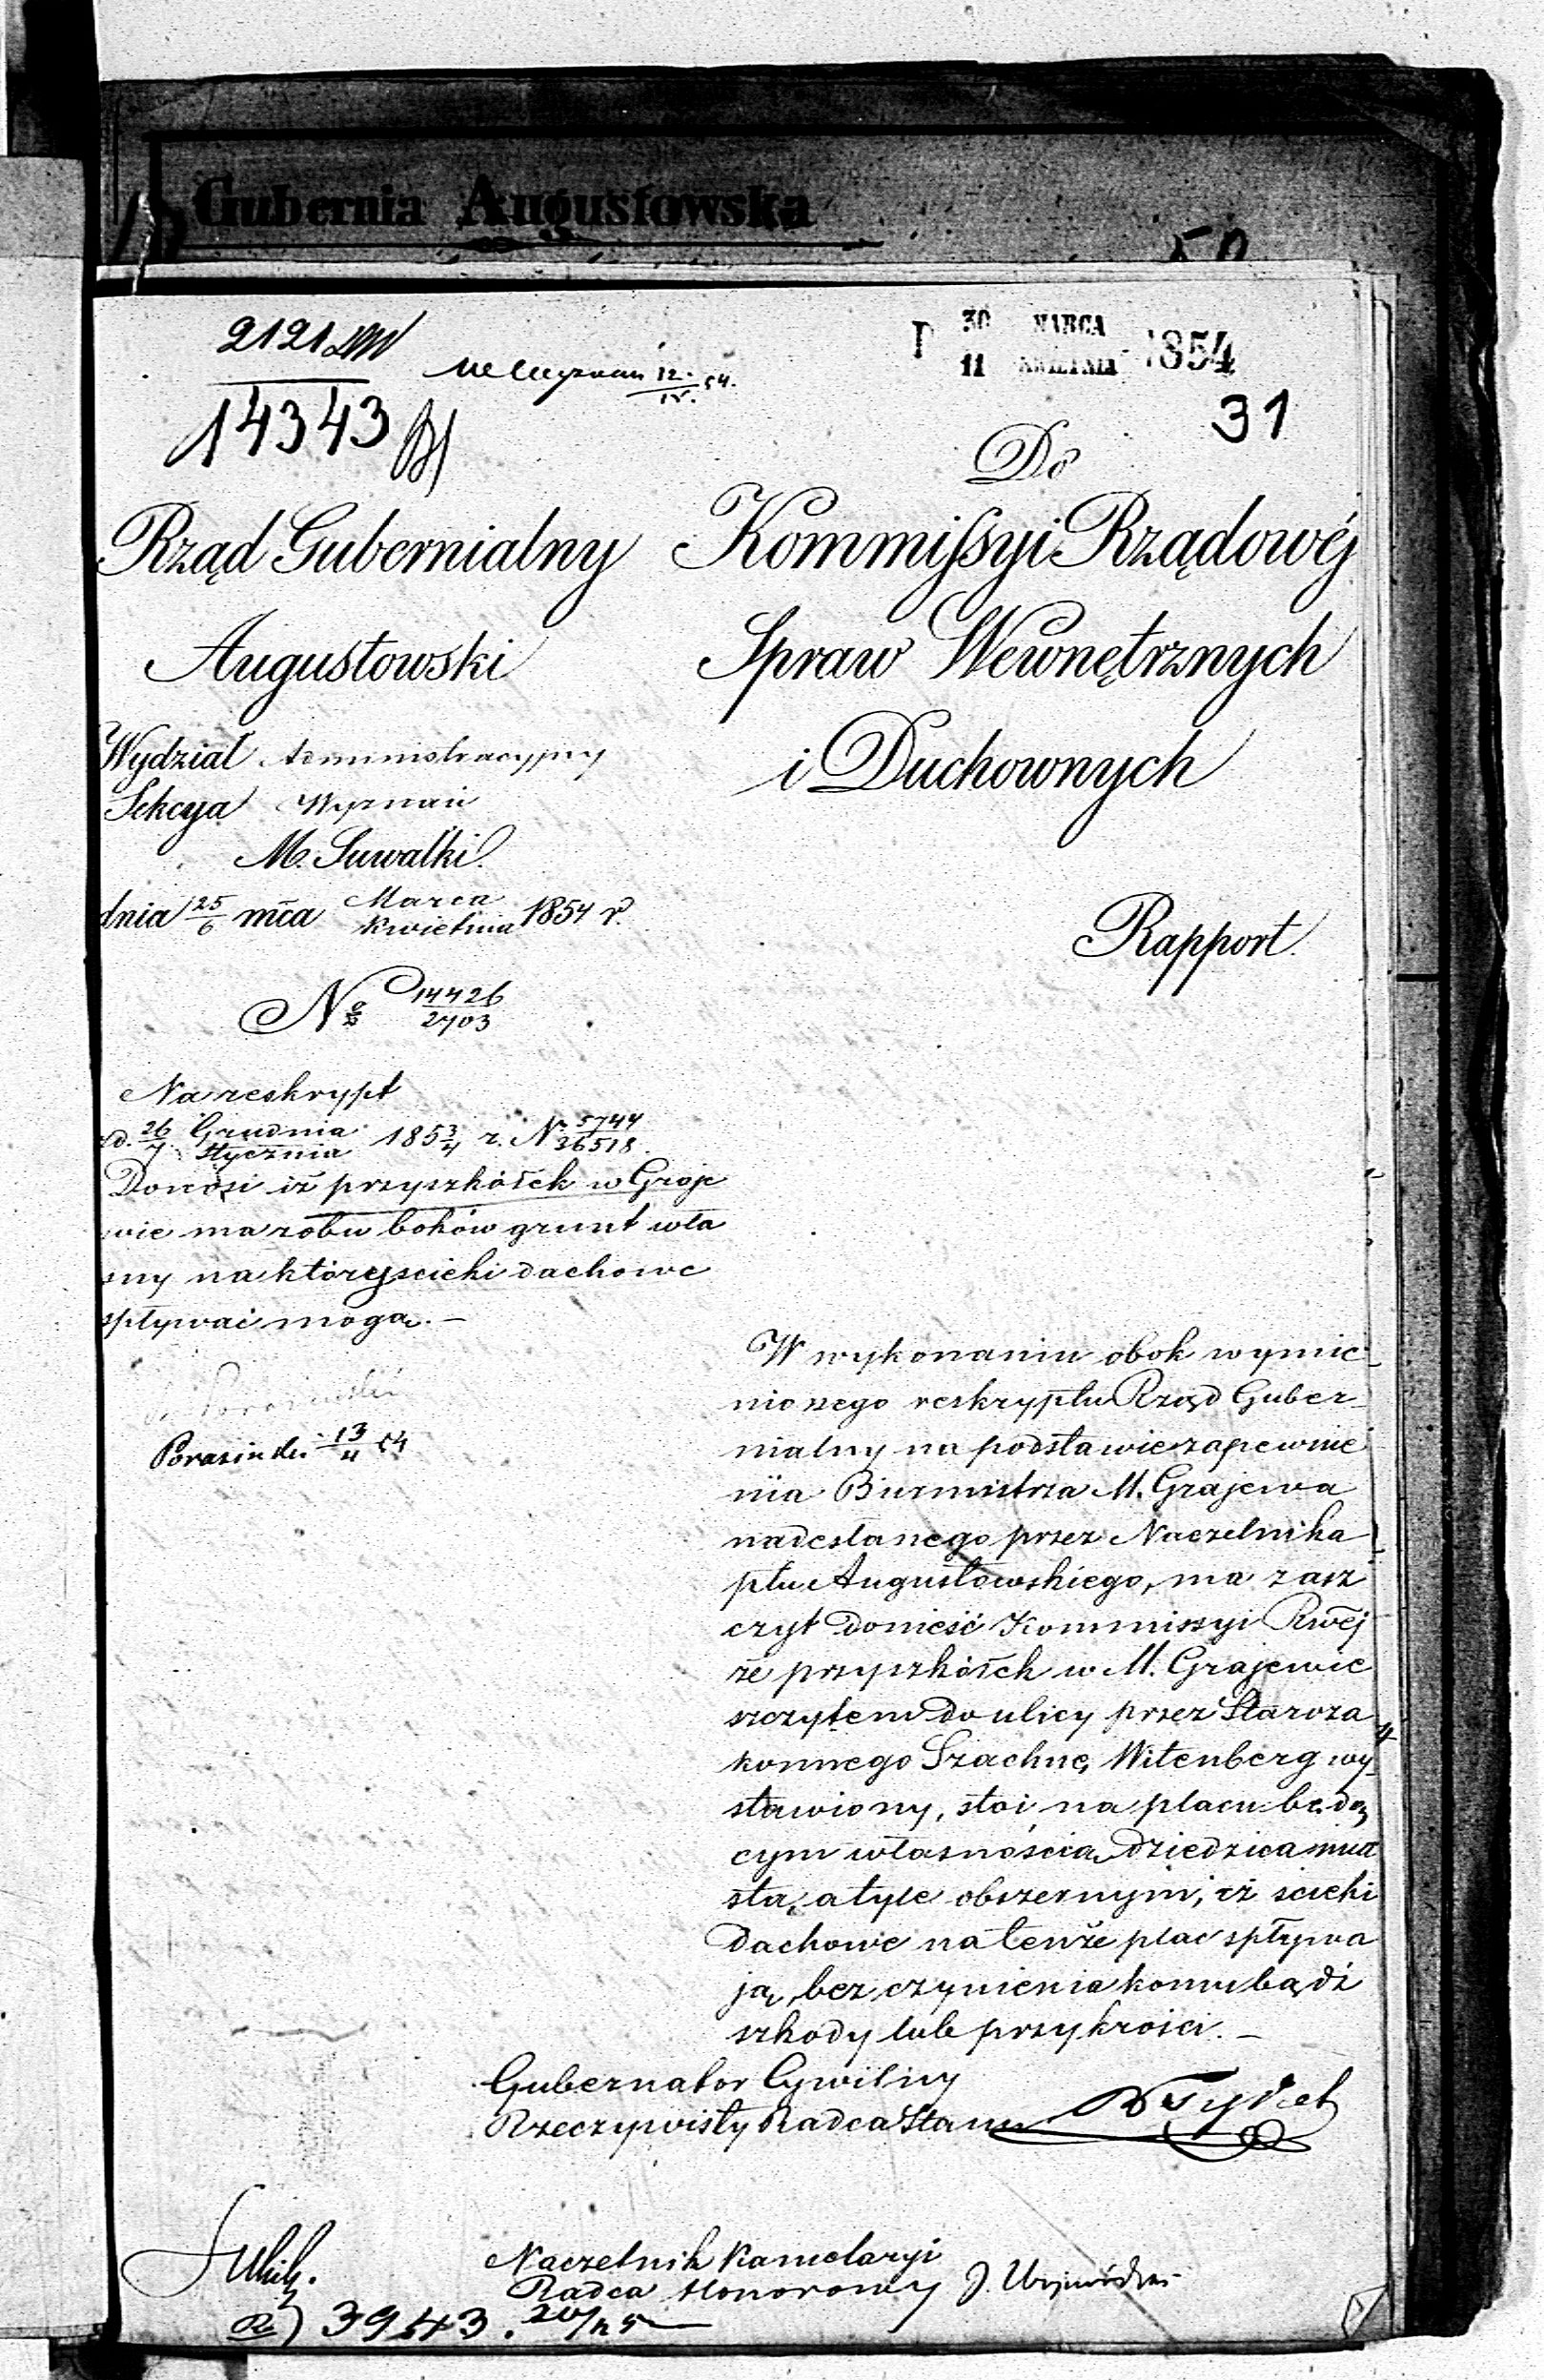 Gubernia Augustowska
2121
14343
12. 54.
IV.
30 MARCA
11 KWIETNIA 1854
31
Do
Rząd Gubernialny
Augustowski
Wydział Administracyjny
Sekcya Wyznań
M. Suwałki.
dnia 25/6 mca Marca/Kwietnia 1854 r.
No 14426/2703
Kommissyi Rządowéj
Spraw Wewnętrznych
i Duchownych
Rapport.
Na reskrypt
z d. 26/7 Grudnia/Stycznia 1853/4 r. N 5744/36518.
Donosi iż przyszkółek w Graje
wie ma z obu boków grunt wła
sny na który ścieki dachowe
spływać mogą. –
13/4 54
W wykonaniu obok wymie
nionego reskryptu Rząd Guber
nialny na podstawie zapewnie
nia Burmistrza M. Grajewa
nadesłanego przez Naczelnika
ptu Augustowskiego, ma zasz
czyt donieść Kommissyi Rwéj
że przyszkółek w M. Grajewie
szczytem do ulicy przez Staroza
konnego Szachnę Witenberg wy
stawiony, stoi na placu będą
cym własnością Dziedzica mia
sta, a tyle obszernym, iż ścieki
dachowe na tenże plac spływa
ją, bez czynienia komu bądź
szkody lub przykrości. –
Gubernator Cywilny
Rzeczywisty Radca Stanu
Naczelnik Kancelaryi
Radca Honorowy
3943.